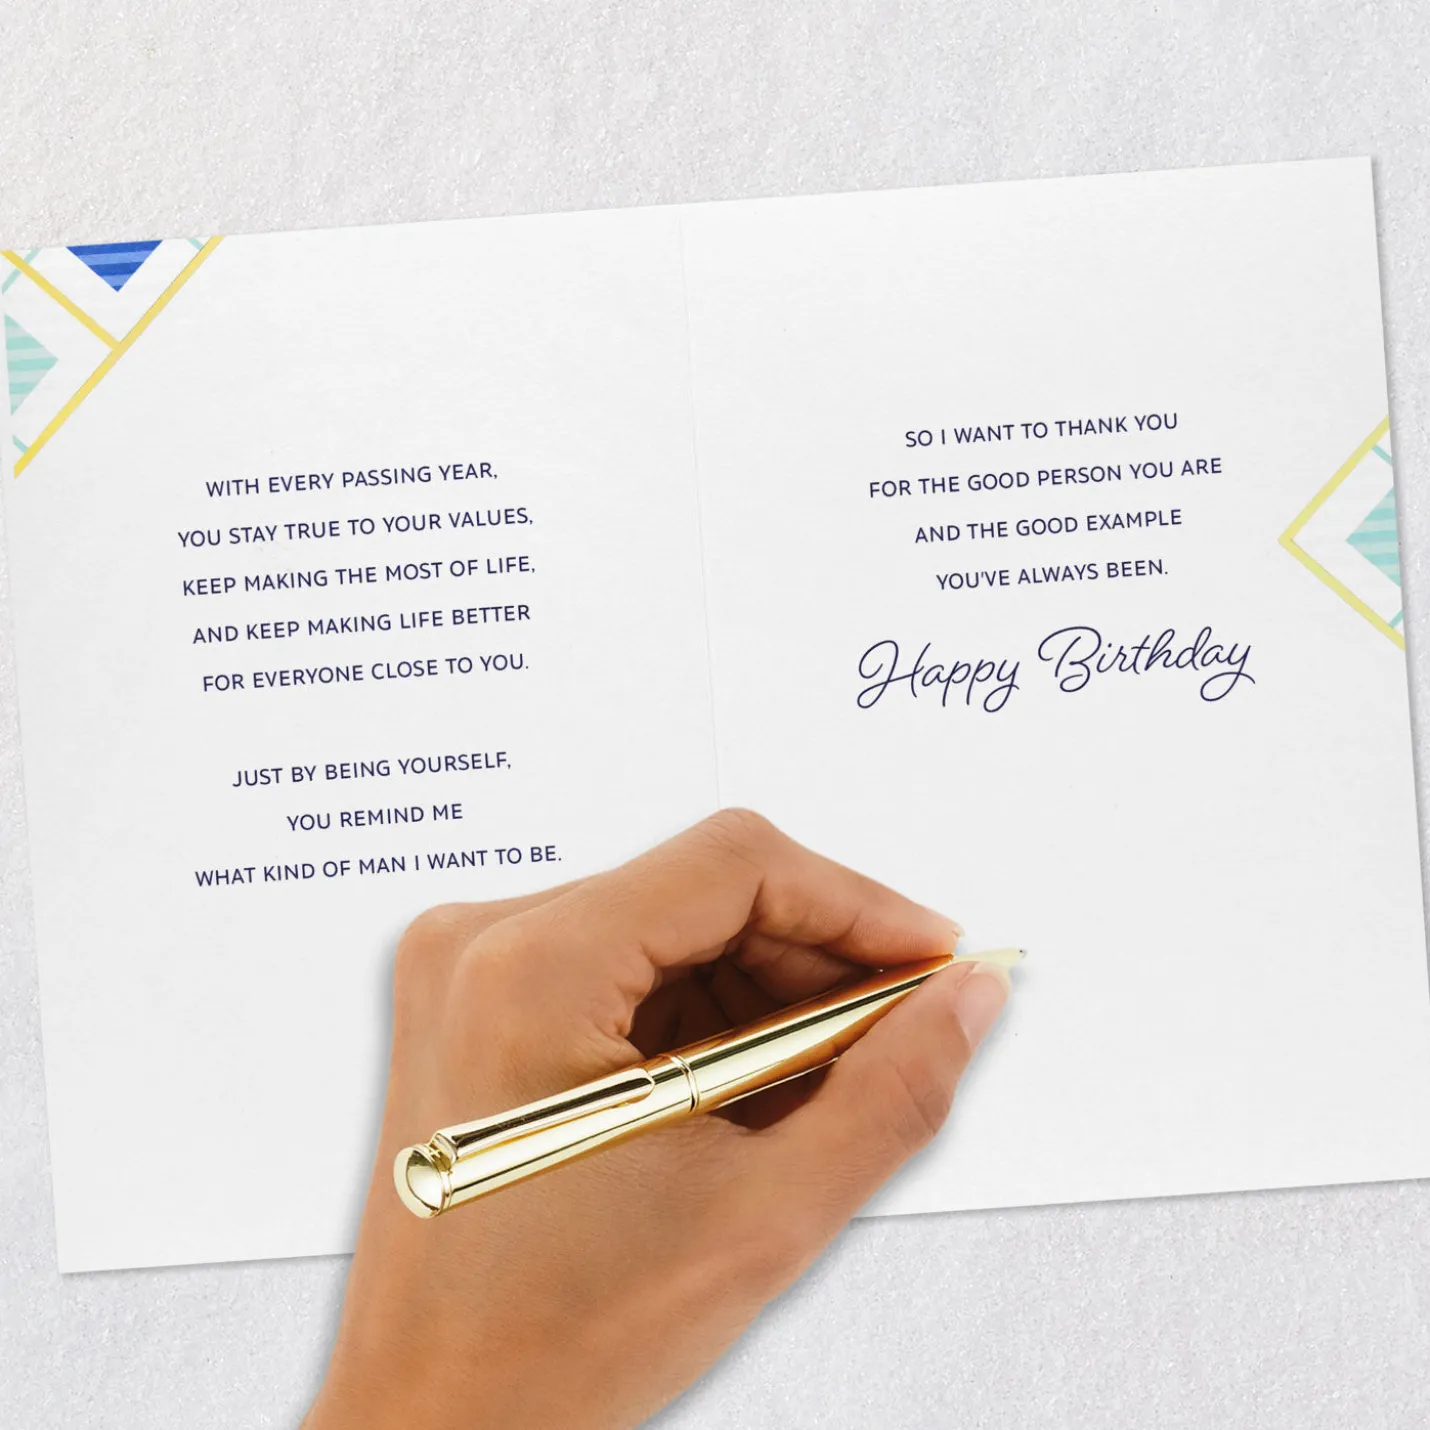 WITH EVERY PASSING YEAR,
YOU STAY TRUE TO YOUR VALUES,
KEEP MAKING THE MOST OF LIFE,
AND KEEP MAKING LIFE BETTER
FOR EVERYONE CLOSE TO YOU.
JUST BY BEING YOURSELF,
YOU REMIND ME
WHAT KIND OF MAN I WANT TO BE.
SO I WANT TO THANK YOU
FOR THE GOOD PERSON YOU ARE
AND THE GOOD EXAMPLE
YOU'VE ALWAYS BEEN.
Happy Birthday